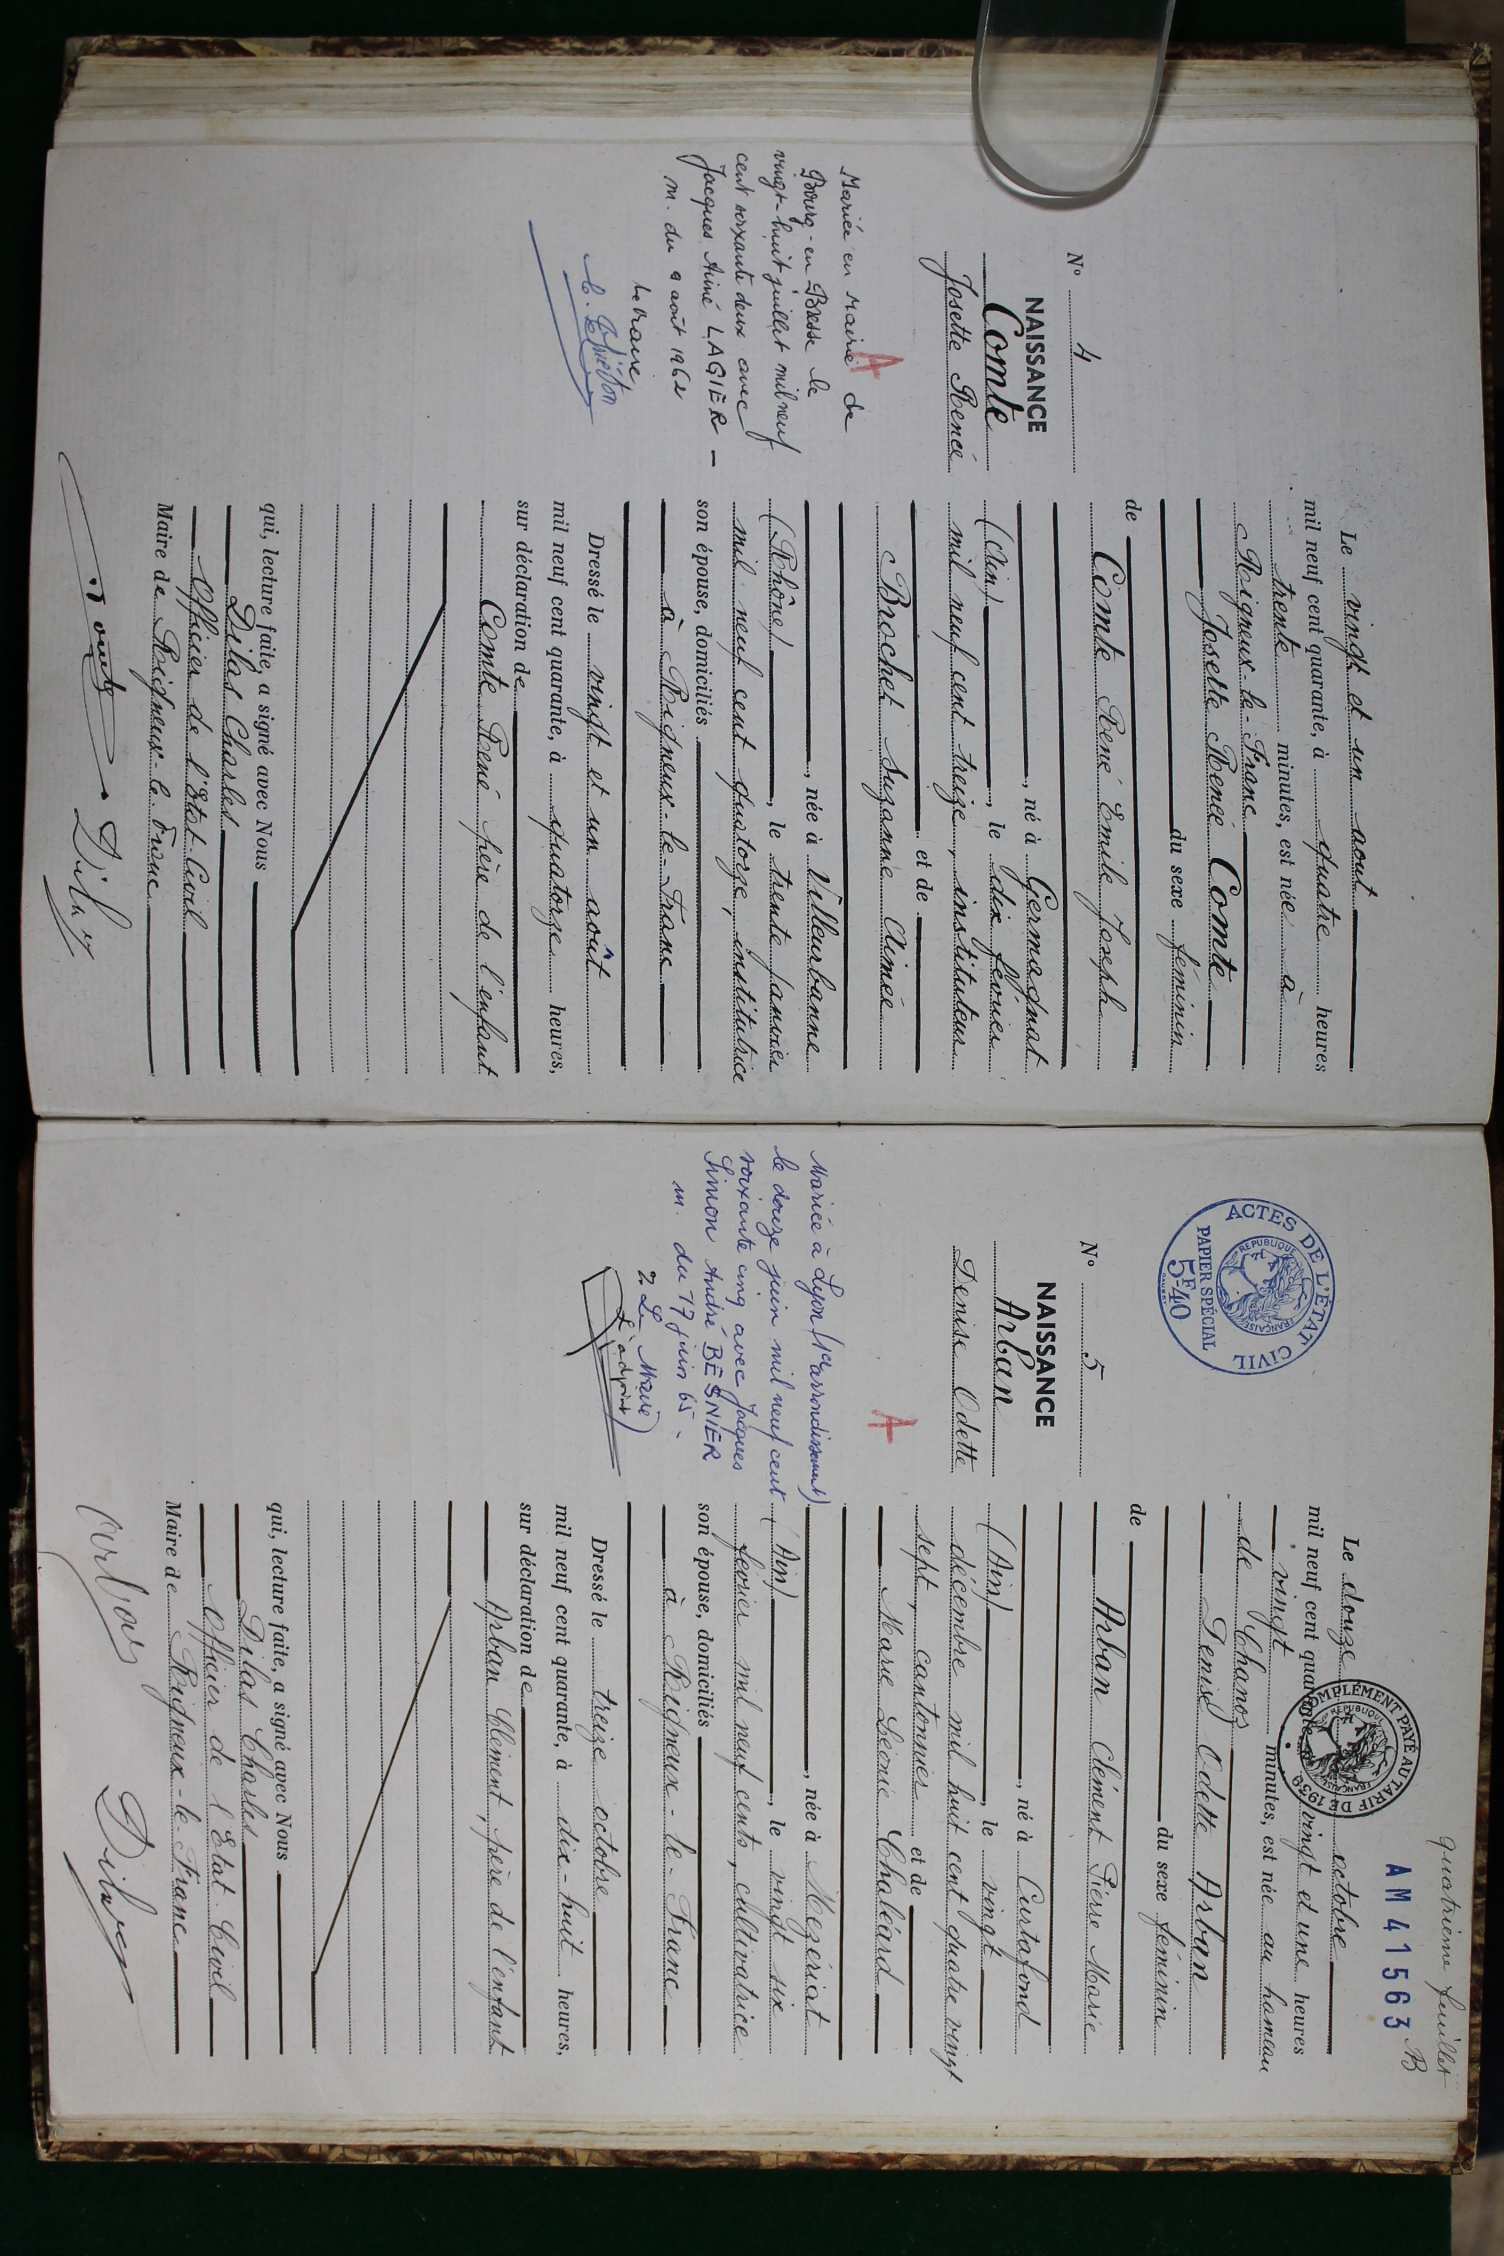 N° 4
NAISSANCE
Comte
Josette Renée
Mariée en Mairie de
Bourg-en Bresse le
vingt-huit juillet mil neuf
cent soixante deux avec
Jacques Aimé LAGIER –
m. du 9 août 1962
Le Maire
A
Le vingt et un aout
mil neuf cent quarante, à quatre heures
trente minutes, est née à
Rigneux-le-Franc
Josette Renée Comte
du sexe féminin
de
Comte René Emile Joseph
, né à Germagnat
(Ain) , le dix février
mil neuf cent treize, instituteur
et de
Brochet Suzanne Aimée
, née à Villeurbanne
(Rhône) , le trente janvier
mil neuf cent quatorze, institutrice
son épouse, domiciliés
à Rigneux-le-Franc
Dressé le vingt et un août
mil neuf cent quarante, à quatorze heures,
sur déclaration de
Comte René père de l'enfant
qui, lecture faite, a signé avec Nous
Dilas Charles
Officier de l'Etat-Civil
Maire de Rigneux-le-Franc
Dilas
quatrième feuillet
AM41563
AB
ACTES DE L'ÉTAT CIVIL
RÉPUBLIQUE FRANÇAISE
PAPIER SPÉCIAL
5F40
COMPLÉMENT PAYÉ AU TARIF DE 1939
RÉPUBLIQUE FRANÇAISE
N° 5
NAISSANCE
Arban
Denise Odette
A
Mariée à Lyon (1er arrondissement)
le douze juin mil neuf cent
soixante cinq avec Jacques
Simon André BESNIER
m. du 17 juin 65 -
Le Maire
L'adjoint
Le douze octobre
mil neuf cent quarante, vingt et une heures
vingt minutes, est née au hameau
de Chanos
Denise Odette Arban
du sexe féminin
de
Arban Clément Pierre Marie
, né à Curtafond
(Ain) , le vingt
décembre mil huit cent quatre vingt
sept, cantonnier et de
Marie Léonie Chaléard
, née à Mézériat
(Ain) , le vingt six
février mil neuf cents, cultivatrice
son épouse, domiciliés
à Rigneux-le-Franc
Dressé le treize octobre
mil neuf cent quarante, à dix-huit heures,
sur déclaration de
Arban Clément, père de l'enfant
qui, lecture faite, a signé avec Nous
Dilas Charles
Officier de l'Etat-Civil
Maire de Rigneux-le-Franc
Arban
Dilas